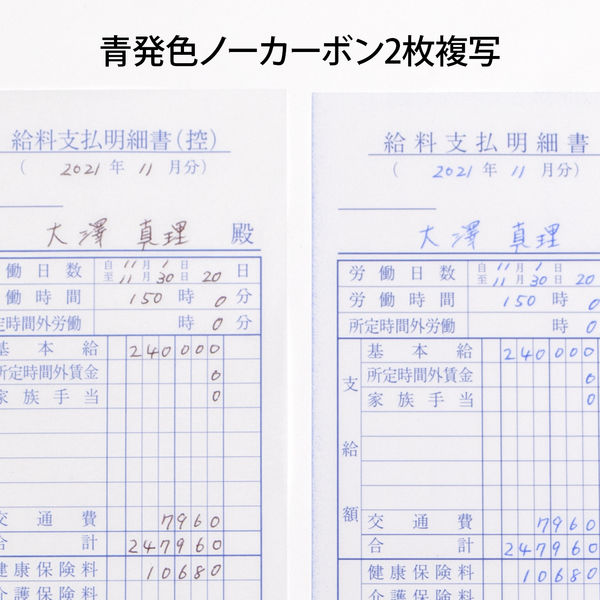 青発色ノーカーボン2枚複写
給料支払明細書(控)
( 2021 年 11 月分)
大澤 真理 殿
働日数 自 11 月 1 日 至 11 月 30 日 20 日
働時間 150 時 0 分
定時間外労働 時 0 分
基本給 240000
所定時間外賃金 0
家族手当 0
交通費 7960
合計 247960
健康保険料 10680
介護保険料
給料支払明細書
( 2021 年 11 月分)
大澤 真理
労働日数 自 11 月 1 日 至 11 月 30 日 20
労働時間 150 時 0
所定時間外労働 時 0
支給額
基本給 240000
所定時間外賃金 0
家族手当 0
交通費 7960
合計 247960
健康保険料 10680
介護保険料